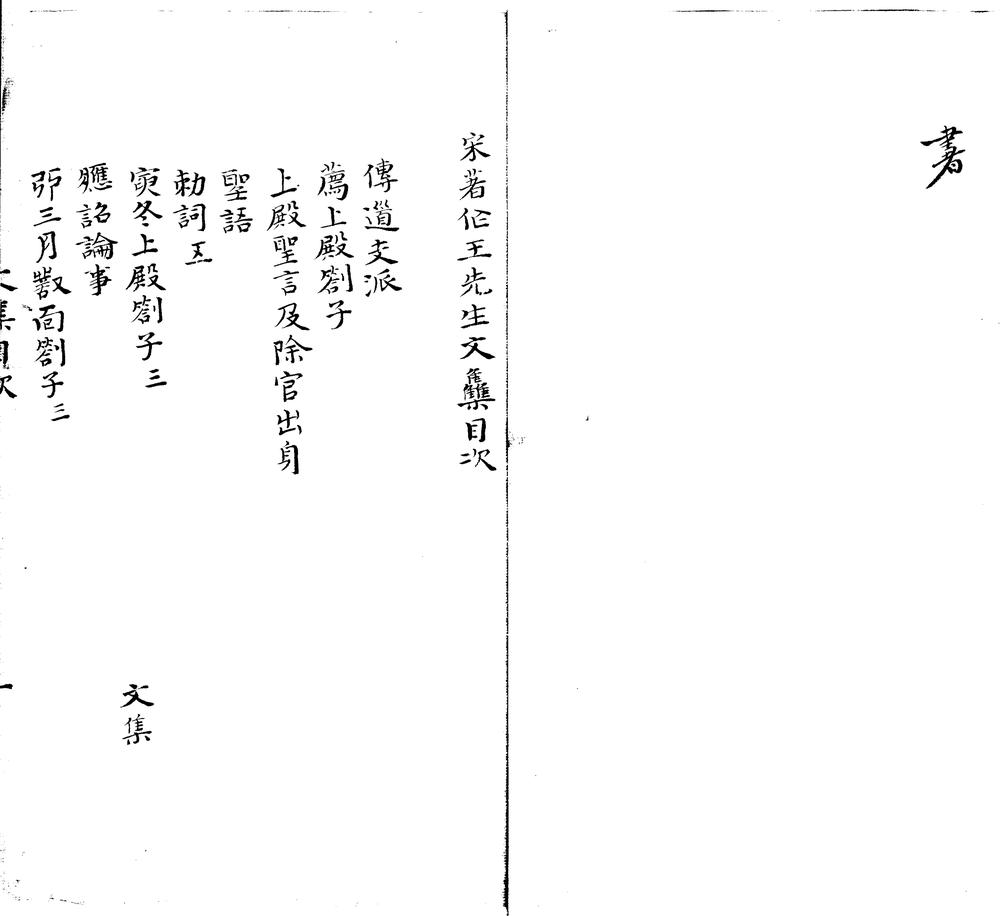 書
宋著作王先生文集目次
傳道支派
薦上殿劄子
上殿聖言及除官出身
聖語
勅詞五
寅冬上殿劄子三
應詔論事
卯三月數面劄子三
文集
文集目次
一